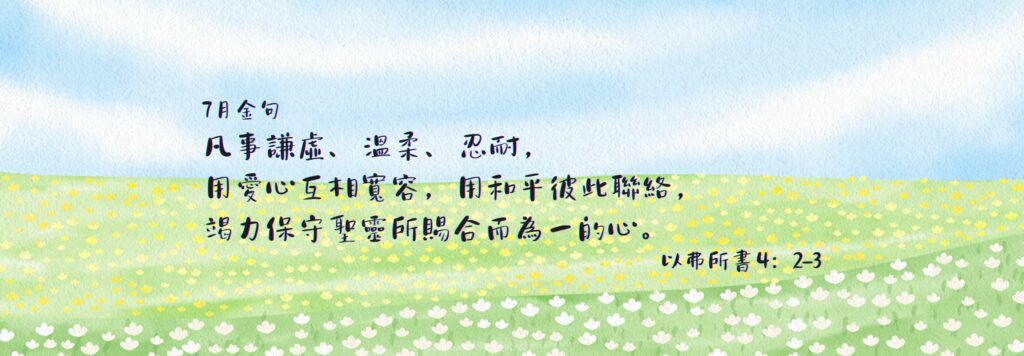 7月金句
凡事謙虛、溫柔、忍耐，
用愛心互相寬容，用和平彼此聯絡，
竭力保守聖靈所賜合而為一的心。
以弗所書4：2-3